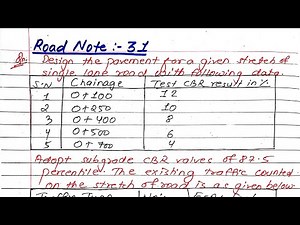 Road Note :- 31
Qn. Design the pavement for a given stretch of
single lane road with following data.
S.N Chainage Test CBR result in %
1 0+100 12
2 0+250 10
3 0+400 8
4 0+500 6
5 0+700 4
Adopt subgrade CBR values of 82.5
percentile. The existing traffic counted
on the stretch of road is as given below